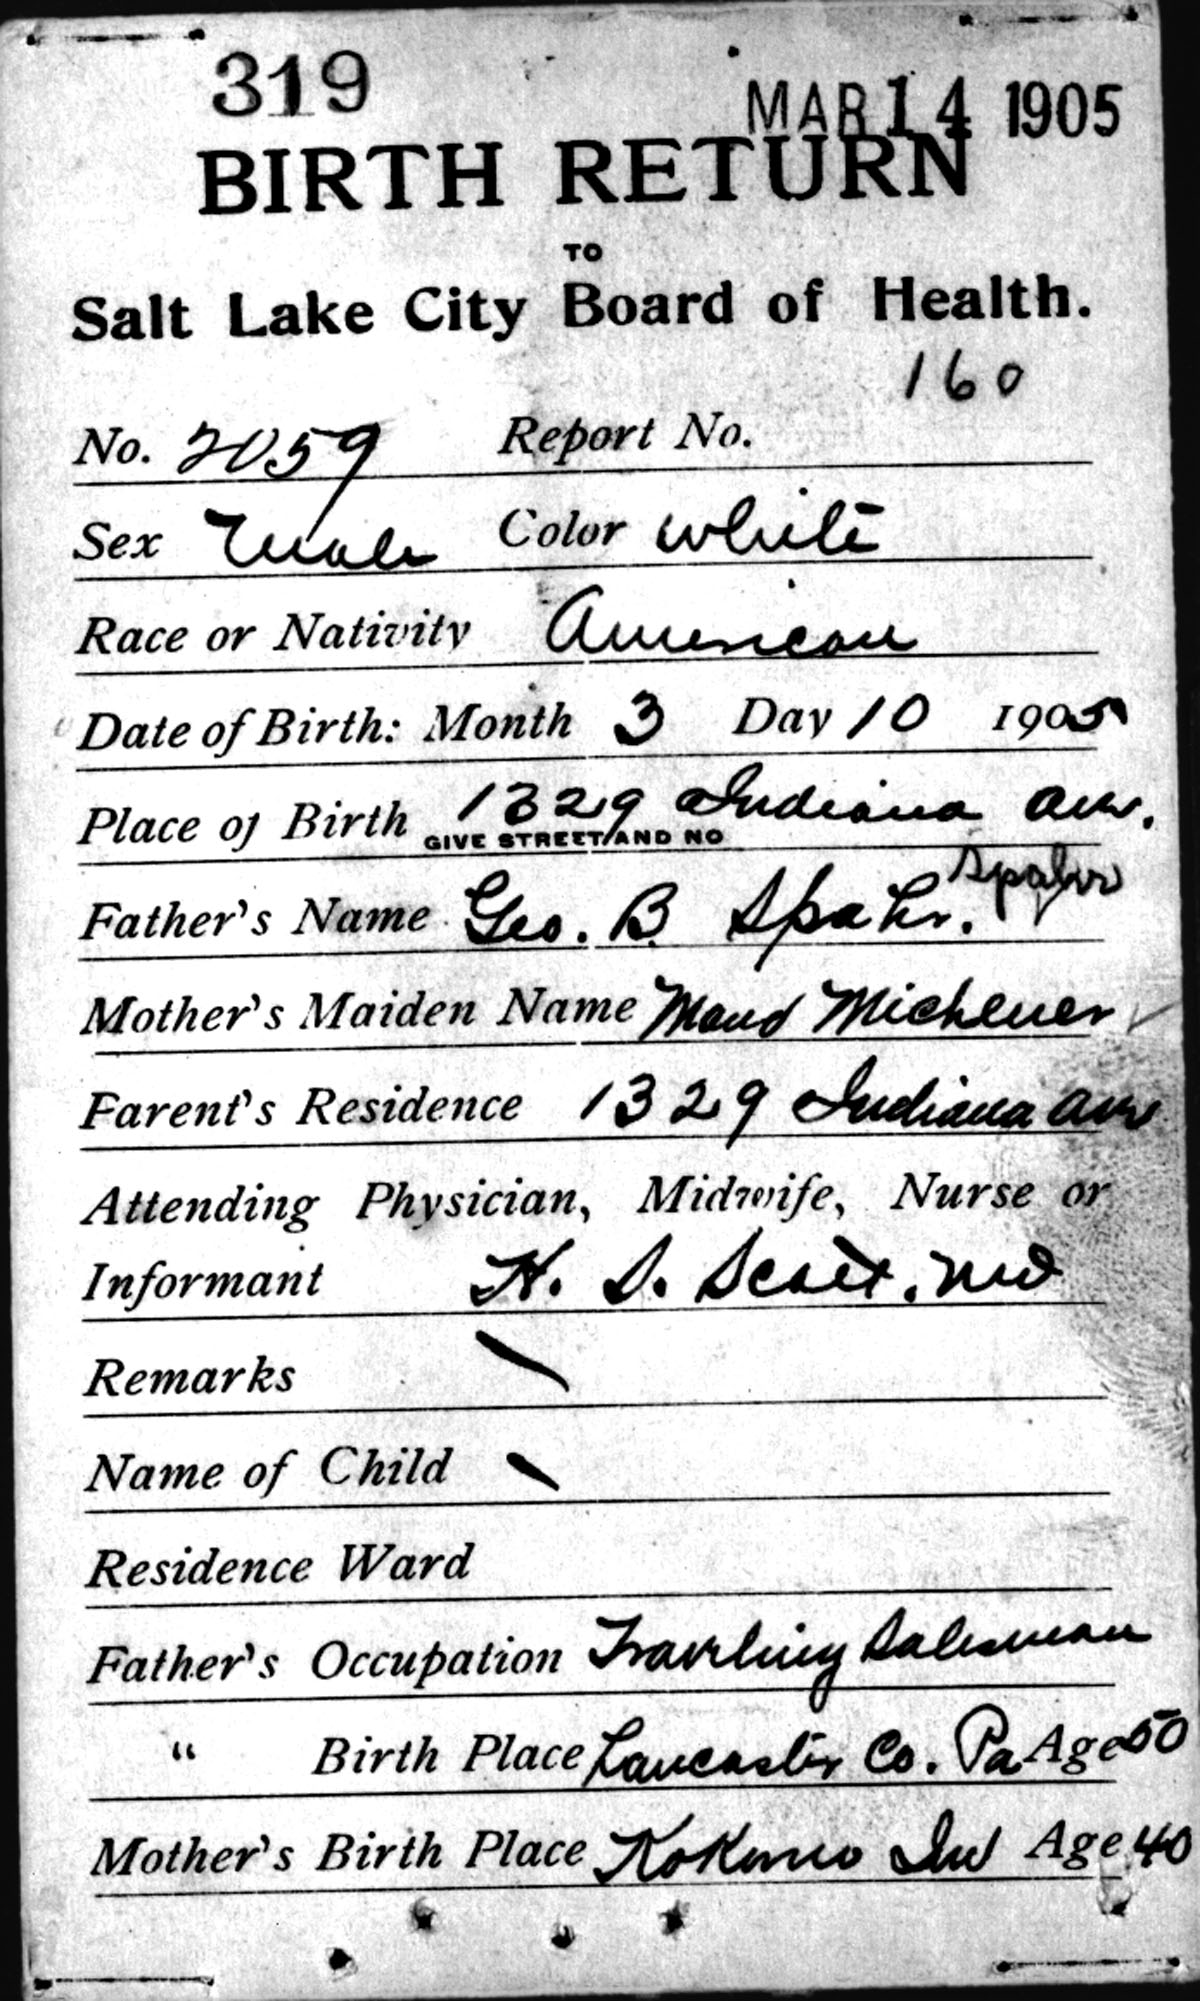 319
MAR 14 1905
BIRTH RETURN
TO
Salt Lake City Board of Health.
160
No. 2059 Report No.
Sex Male Color White
Race or Nativity American
Date of Birth: Month 3 Day 10 1905
Place of Birth 1329 Indiana Ave.
GIVE STREET AND NO
Spahr
Father's Name Geo. B. Spahr.
Mother's Maiden Name Maud Michener
Parent's Residence 1329 Indiana Ave
Attending Physician, Midwife, Nurse or
Informant H. S. Scott, MD
Remarks
Name of Child
Residence Ward
Father's Occupation Traveling Salesman
" Birth Place Lancaster Co. Pa Age 50
Mother's Birth Place Kokomo Ind Age 40